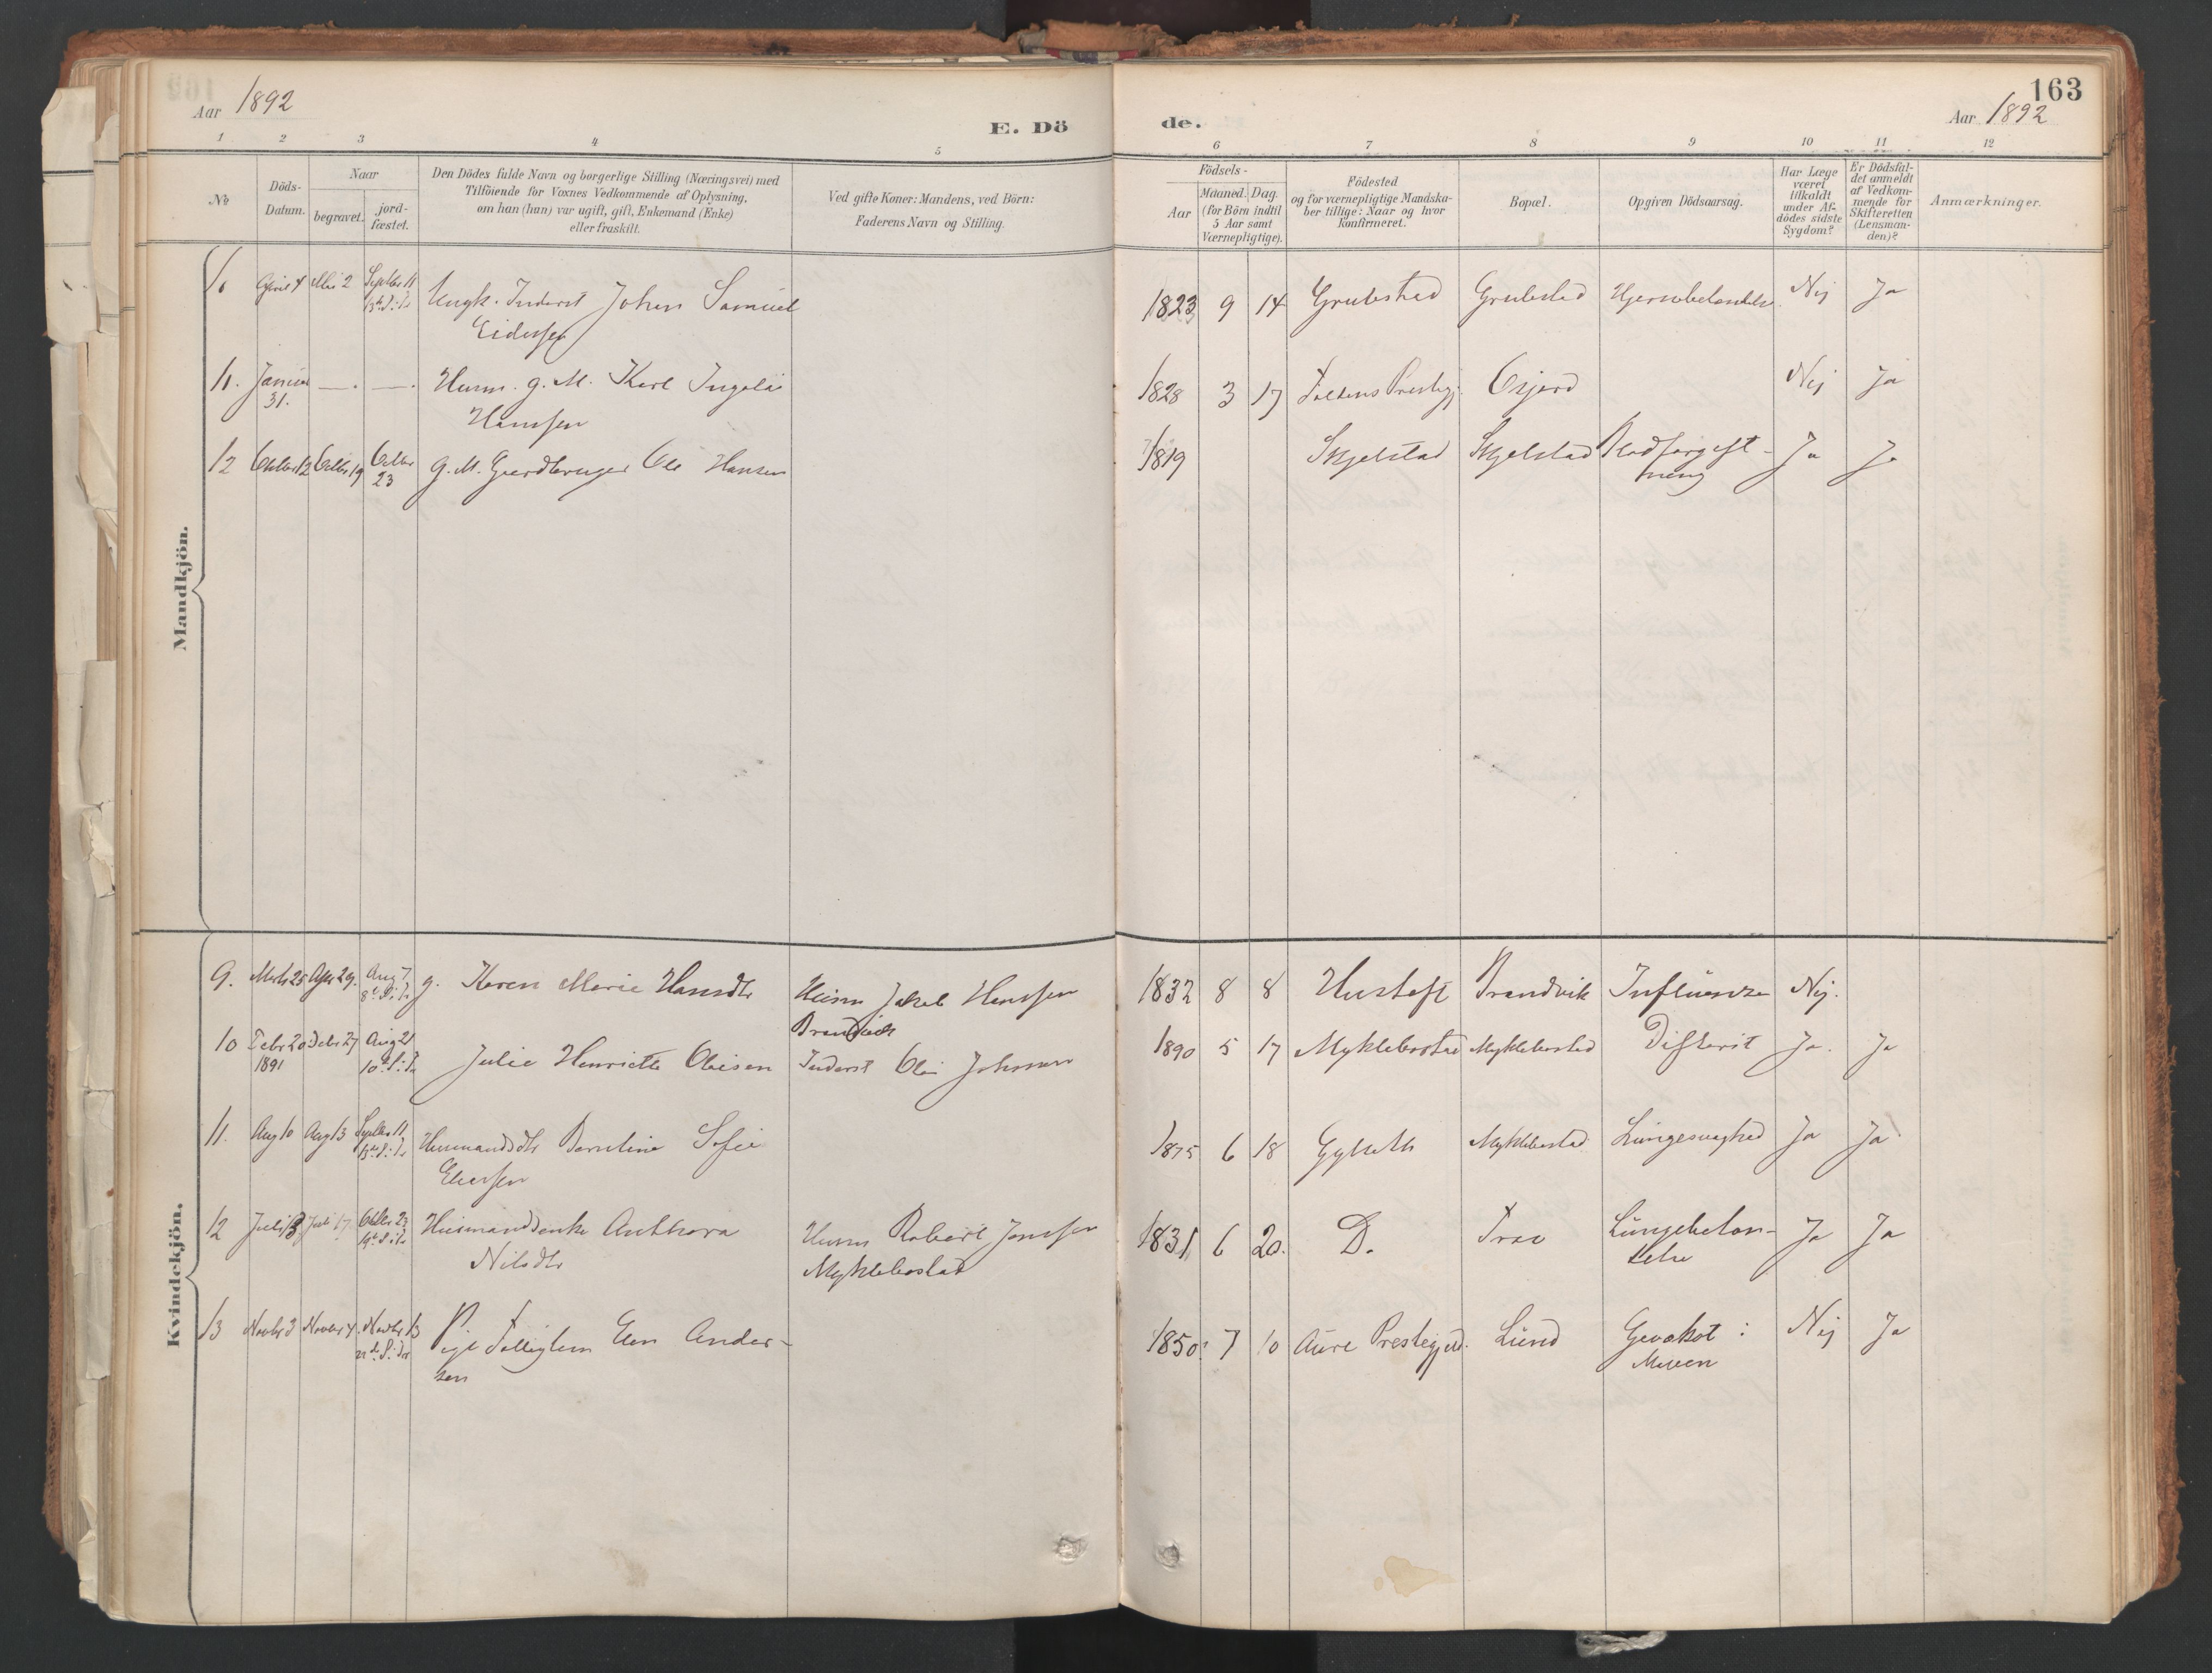 163
Aar 1892
E. Dö
de.
Aar 1892
1 2 3 4 5 6 7 8 9 10 11 12
No
Döds-
Datum.
Naar
begravet.
jord-
fæstet.
Den Dödes fulde Navn og borgerlige Stilling (Næringsvei) med
Tilföiende for Voxnes Vedkommende af Oplysning,
om han (hun) var ugift, gift, Enkemand (Enke)
eller fraskilt.
Ved gifte Koner: Mandens, ved Börn:
Faderens Navn og Stilling.
Födsels-
Aar
Maaned. Dag.
(for Börn indtil
5 Aar samt
Værnepligtige).
Födested
og for værnepligtige Mandska-
ber tillige: Naar og hvor
Konfirmeret.
Bopæl.
Opgiven Dödsaarsag.
Har Læge
været
tilkaldt
under Af-
dödes sidste
Sygdom?
Er Dödsfal-
det anmeldt
af Vedkom-
mende for
Skifteretten
(Lensman-
den)?
Anmærkninger.
Mandkjön.
April 4 Mai 2 Septbr 11 Ungk. Inderst Johan Samuel
Eidessen
1823 9 14 Grubstad Grubstad Nej Ja
11. Januar
31. —. —. Husm. g. M. Karl Ingolai
Hanssen
1828 3 17 Foldens Prestegj. Osjord Nej Ja
12 Oktbr 12 Octbr 19 Octbr
23 g. M. Gaardbruger Ole Hansen
1819 Skjelstad Skjelstad Blodforgift-
ning Ja Ja
Kvindekjön.
9. Marts 25 Apr 29. Aug 7
8de S. i Tr. g. Karen Marie Hansdtr Husm Jakob Hanssen
Brandvik
1832 8 8 Hustoft Brandvik Influenza Nej.
10 Febr 20 Febr 27 Aug 21
1891 10de S. i Tr. Julie Henriette Olaisen Inderst Olai Johnsen
1890 5 17 Myklebostad Myklebostad Difterit Ja. Ja
11. Aug 10 Aug 13 Septbr 11 Husmandsdtr Berntine Sofie
1875 6 18 Myklebostad Lungesvaghed Ja Ja
12 Juli 13 Juli 17 Oktbr 23
19de S. i Tr. Husmandsenke Anthora
Nilsdtr
Husm Robert Jonssen
Myklebostad
1831 6 20. D. Lungebetæn-
delse Ja Ja
13 Novbr 3 Novbr 4 Novbr 13 Pige Fattiglem Elen Ander-
sen
1850 7 10 Aure Prestegjeld. Lund Gevækst i
Maven Nej Ja